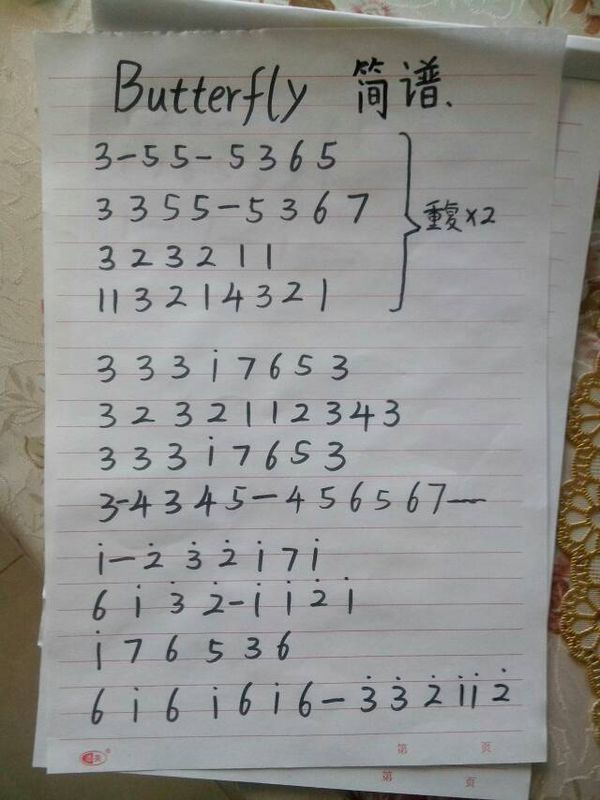 Butterfly 简谱.
3-55-5365
3355-5367
重复×2
323211
113214321
333i17653
3232112343
333i7653
3-4345-456567—
i-2̇3̇2̇i7i
6i3̇2̇-ii2̇i
i76536
6i6i6i6-3̇3̇2̇ii2̇
第 页
第 页